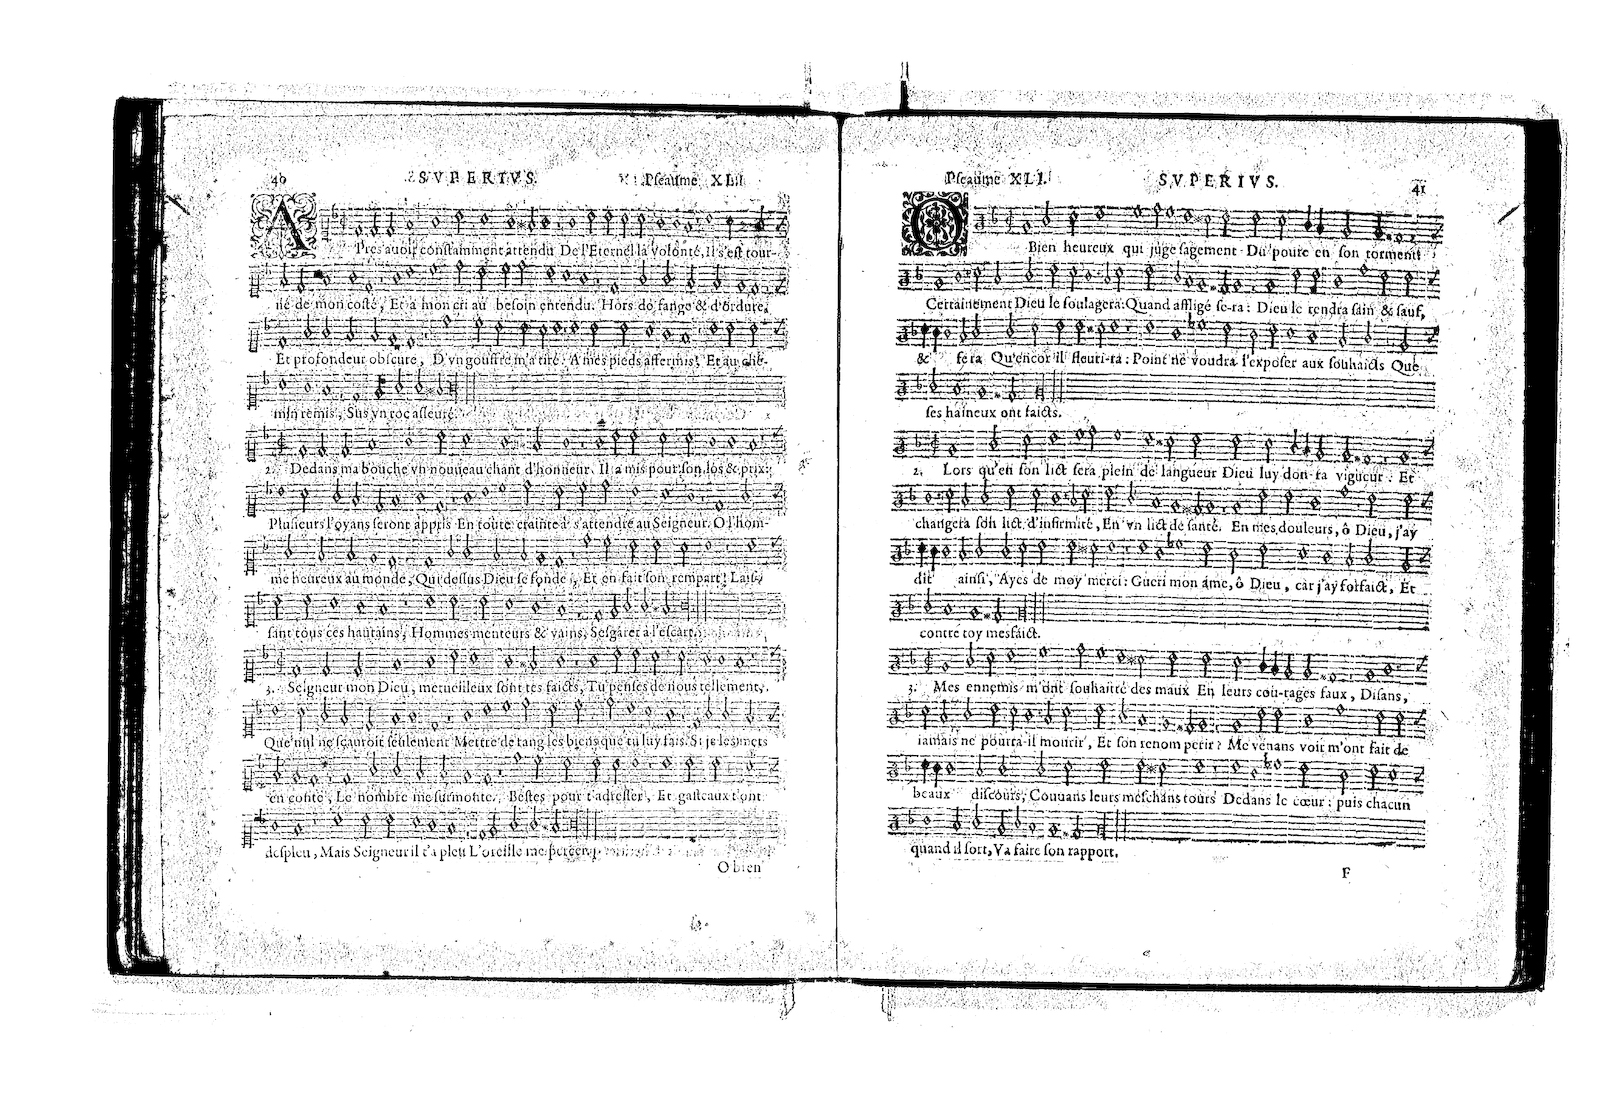 40 SVPERIVS. Pseaume XLI
APres auoir constamment attendu De l'Eternel la volonté, Il s'est tour-
né de mon costé, Et a mon cri au besoin entendu. Hors de fange & d'ordure,
Et profondeur obscure, D'vn gouffre m'a tiré: A mes pieds affermis, Et au che-
min remis, Sus vn roc asseuré.
2. Dedans ma bouche vn nouueau chant d'honneur. Il a mis pour son los & prix:
Plusieurs l'oyans seront appris En toute crainte à s'attendre au Seigneur. O l'hom-
me heureux au monde, Qui dessus Dieu se fonde, Et en fait son rempart! Lais-
sant tous ces hautains, Hommes menteurs & vains, S'esgarer à l'escart.
3. Seigneur mon Dieu, merueilleux sont tes faicts, Tu penses de nous tellement,
Que nul ne sçauroit seulement Mettre de rang les biens que tu luy fais. Si je les mets
en conte, Le nombre me surmonte. Bestes pour t'adresser, Et gasteaux t'ont
despleu, Mais Seigneur il t'a pleu L'oreille me percer.
O bien
Pseaume XLI. SVPERIVS. 41
O Bien heureux qui juge sagement Du poure en son torment!
Certainement Dieu le soulagera: Quand affligé se-ra: Dieu le rendra sain & sauf,
& fera Qu'encor il fleuri-ra: Point ne voudra l'exposer aux souhaicts Que
ses haineux ont faicts.
2. Lors qu'en son lict sera plein de langueur Dieu luy don-ra vigueur: Et
changera son lict d'infirmité, En vn lict de santé. En mes douleurs, ô Dieu, j'ay
dit ainsi, Ayes de moy merci: Gueri mon ame, ô Dieu, car j'ay forfaict, Et
contre toy mesfaict.
3. Mes ennemis m'ont souhaitté des maux En leurs cou-rages faux, Disans,
iamais ne pourra-il mourir, Et son renom perir? Me venans voir m'ont fait de
beaux discours, Couuans leurs meschans tours Dedans le cœur: puis chacun
quand il sort, Va faire son rapport.
F